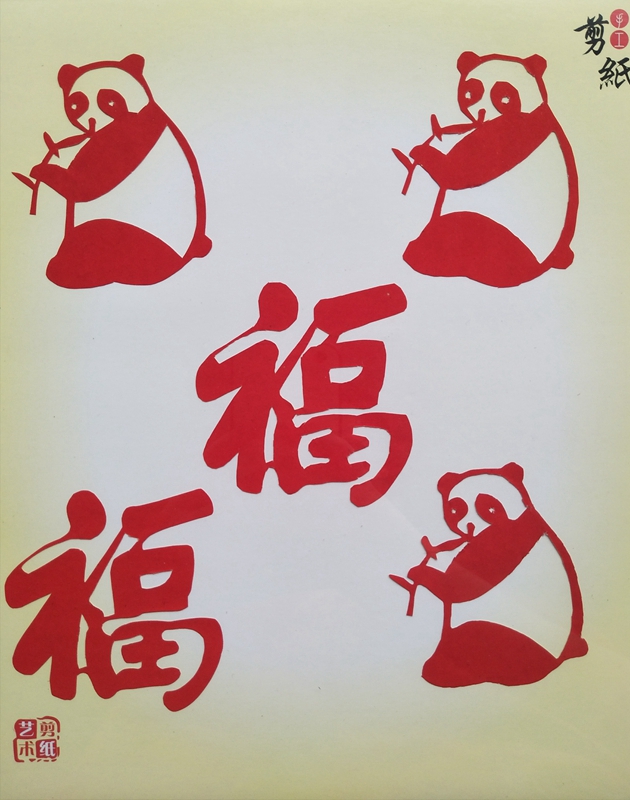 手工
剪紙
福
福
剪纸
艺术